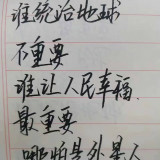 谁统治地球
不重要
谁让人民幸福
最重要
哪怕是外星人